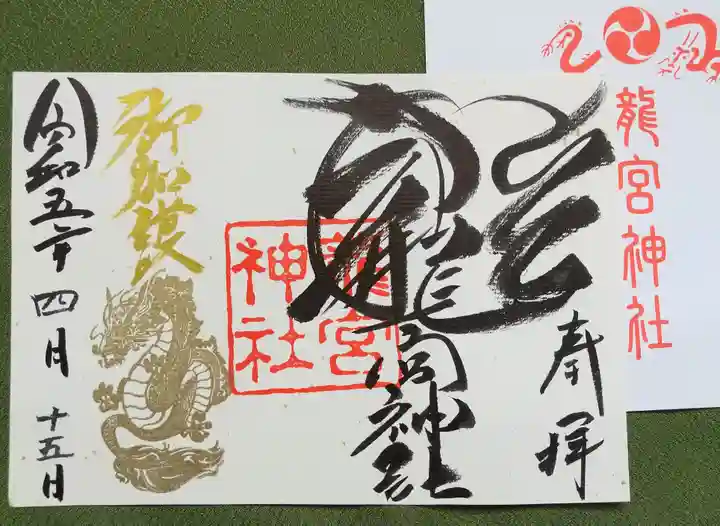 龍宮神社
奉拝
龍宮神社
龍宮
神社
御加護
令和五年
四月
十五日